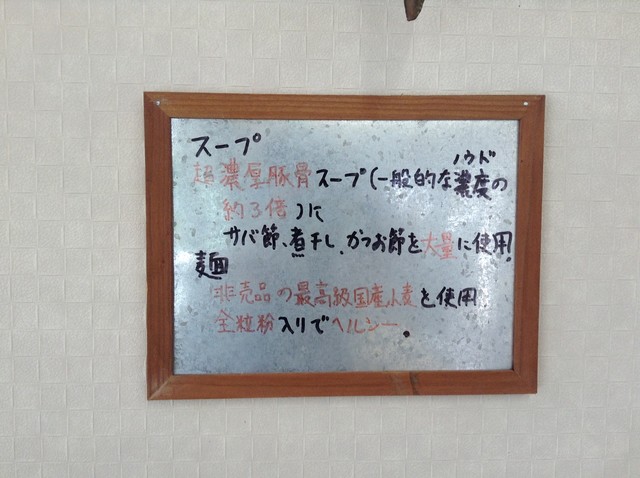 スープ
ノウド
超濃厚豚骨スープ(一般的な濃度の
約3倍)に
サバ節、煮干し、かつお節を大量に使用。
麺
非売品の最高級国産小麦を使用。
全粒粉入りでヘルシー。